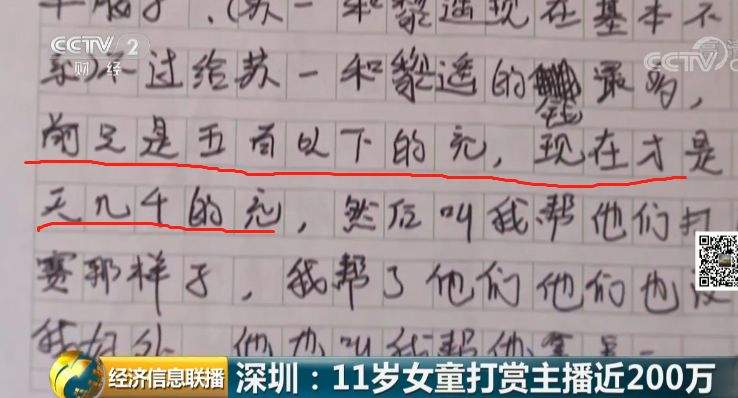 CCTV 2
财经
CCTV 高清
苏一和黎遥现在基本不
不过给苏一和黎遥的钱最多，
前足是五百以下的充，现在才是
天几千的充，然后叫我帮他们打
赛那样子，我帮了他们他们也没
我好处 他也叫我帮他
经济信息联播
深圳：11岁女童打赏主播近200万